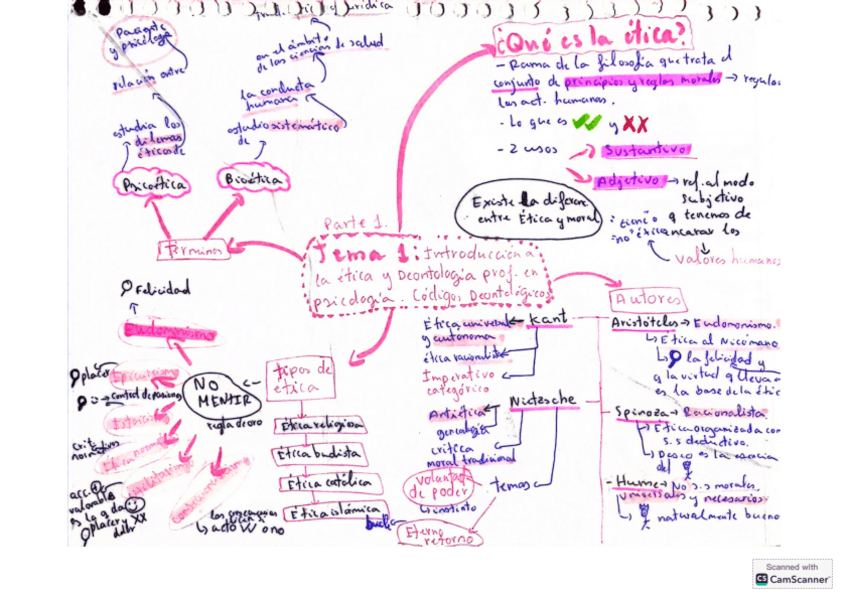 ¿Qué es la ética?
- Rama de la filosofía que trata el
conjunto de principios y reglas morales → regulan
las act. humanas.
- Lo que es y XX
- 2 usos
Sustantivo
Adjetivo → ref. al modo
subjetivo
q tenemos de
encarar los
valores humanos
"no ético"
Existe la diferenc.
entre Ética y moral
jurídica
en el ámbito
de las ciencias de salud
la conducta
humana
estudio sistemático
de
Bioética
Paciente
y psicólogo
relación entre
estudia los
dilemas
éticos de
Psicoética
Términos
Parte 1.
Tema 1: Introducción a
la ética y Deontología prof. en
psicología. Códigos Deontológicos
Autores
Aristóteles → Eudomonismo.
Ética al Nicómano
la felicidad y
q la virtud q lleva a
es la base de la étic
Spinoza → Racionalista.
Ética organizada con
s.s deductivo.
Deseo es la esencia
del
- Hume → No s.s morales,
universales y necesarios
naturalmente bueno
Kant
Ética universal
y autónoma
ética racionalista
Imperativo
categórico
Nietzsche
Antiética
genealogía
crítica
moral tradicional
temas
voluntad
de poder
instinto
Eterno
retorno
tipos de
ética
Ética religiosa
Ética budista
Ética católica
Ética islámica
NO
MENTIR
regla de oro
Felicidad
Eudomonismo
placer
Epicureísmo
control de pasiones
Estoicismo
crit.
normativos
Ética norma
Utilitarismo
acc.
valorable
es la q da
placer y XX
dolr
las consecuencias
acto W o no
Scanned with
CamScanner